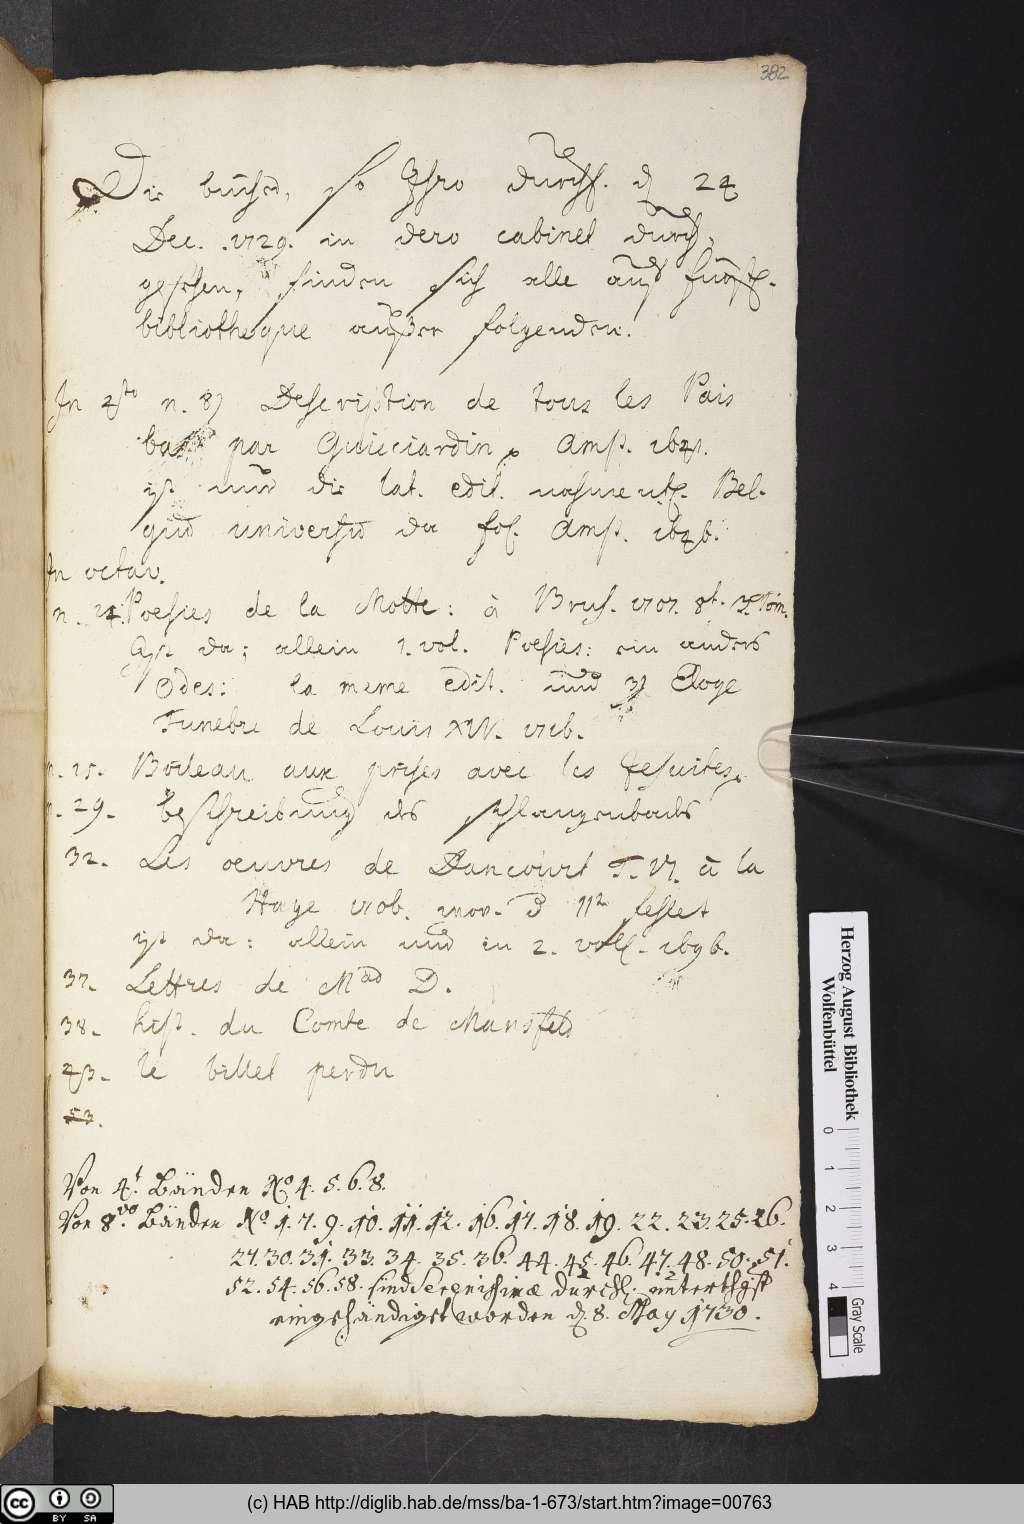 382
Die bücher, so Ihro durchl. d 24
Dec. 1729. in dero cabinet durch,
gesehen, finden sich alle auf fürstl.
bibliotheque außer folgenden.
In 4to n. 8) Description de tous les Pais
bas par Guicciardin, Amst. 1641.
ist nur die lat. edit. nahmentl. Bel-
gium universum da fol. Amst. 1646.
In octav.
n. 24. Poesies de la Motte: à Brus. 1707. 8t. 3. Tom.
Ist da; allein 1. vol. Poesies: ein anders
Odes: la meme edit. und 3) Eloge
Funebre de Louis XIV. 1716.
n. 25. Boileau aux prises avec les Jesuites.
n. 29. beschreibung des schlangenbades
32. Les oeuvres de Dancourt T. VI. à la
Haye 1706. fehlet
ist da: allein nur in 2. voll. 1696.
37. Lettres de Mad D.
38. hist. du Comte de Mansfeld
43. le billet perdu
53.
Von 4t. Bänden No 4. 5. 6. 8.
Von 8vo. Bänden No. 1. 7. 9. 10. 11. 12. 16. 17. 18. 19. 22. 23. 25. 26.
27. 30. 31. 33. 34. 35. 36. 44. 45. 46. 47. 48. 50. 51.
52. 54. 56. 58. sind Serenissimæ Durchl. unterthgst
eingehändiget worden d. 8. May 1730.
Herzog August Bibliothek
Wolfenbüttel
0 1 2 3 4
Gray Scale
cc BY SA
(c) HAB http://diglib.hab.de/mss/ba-1-673/start.htm?image=00763